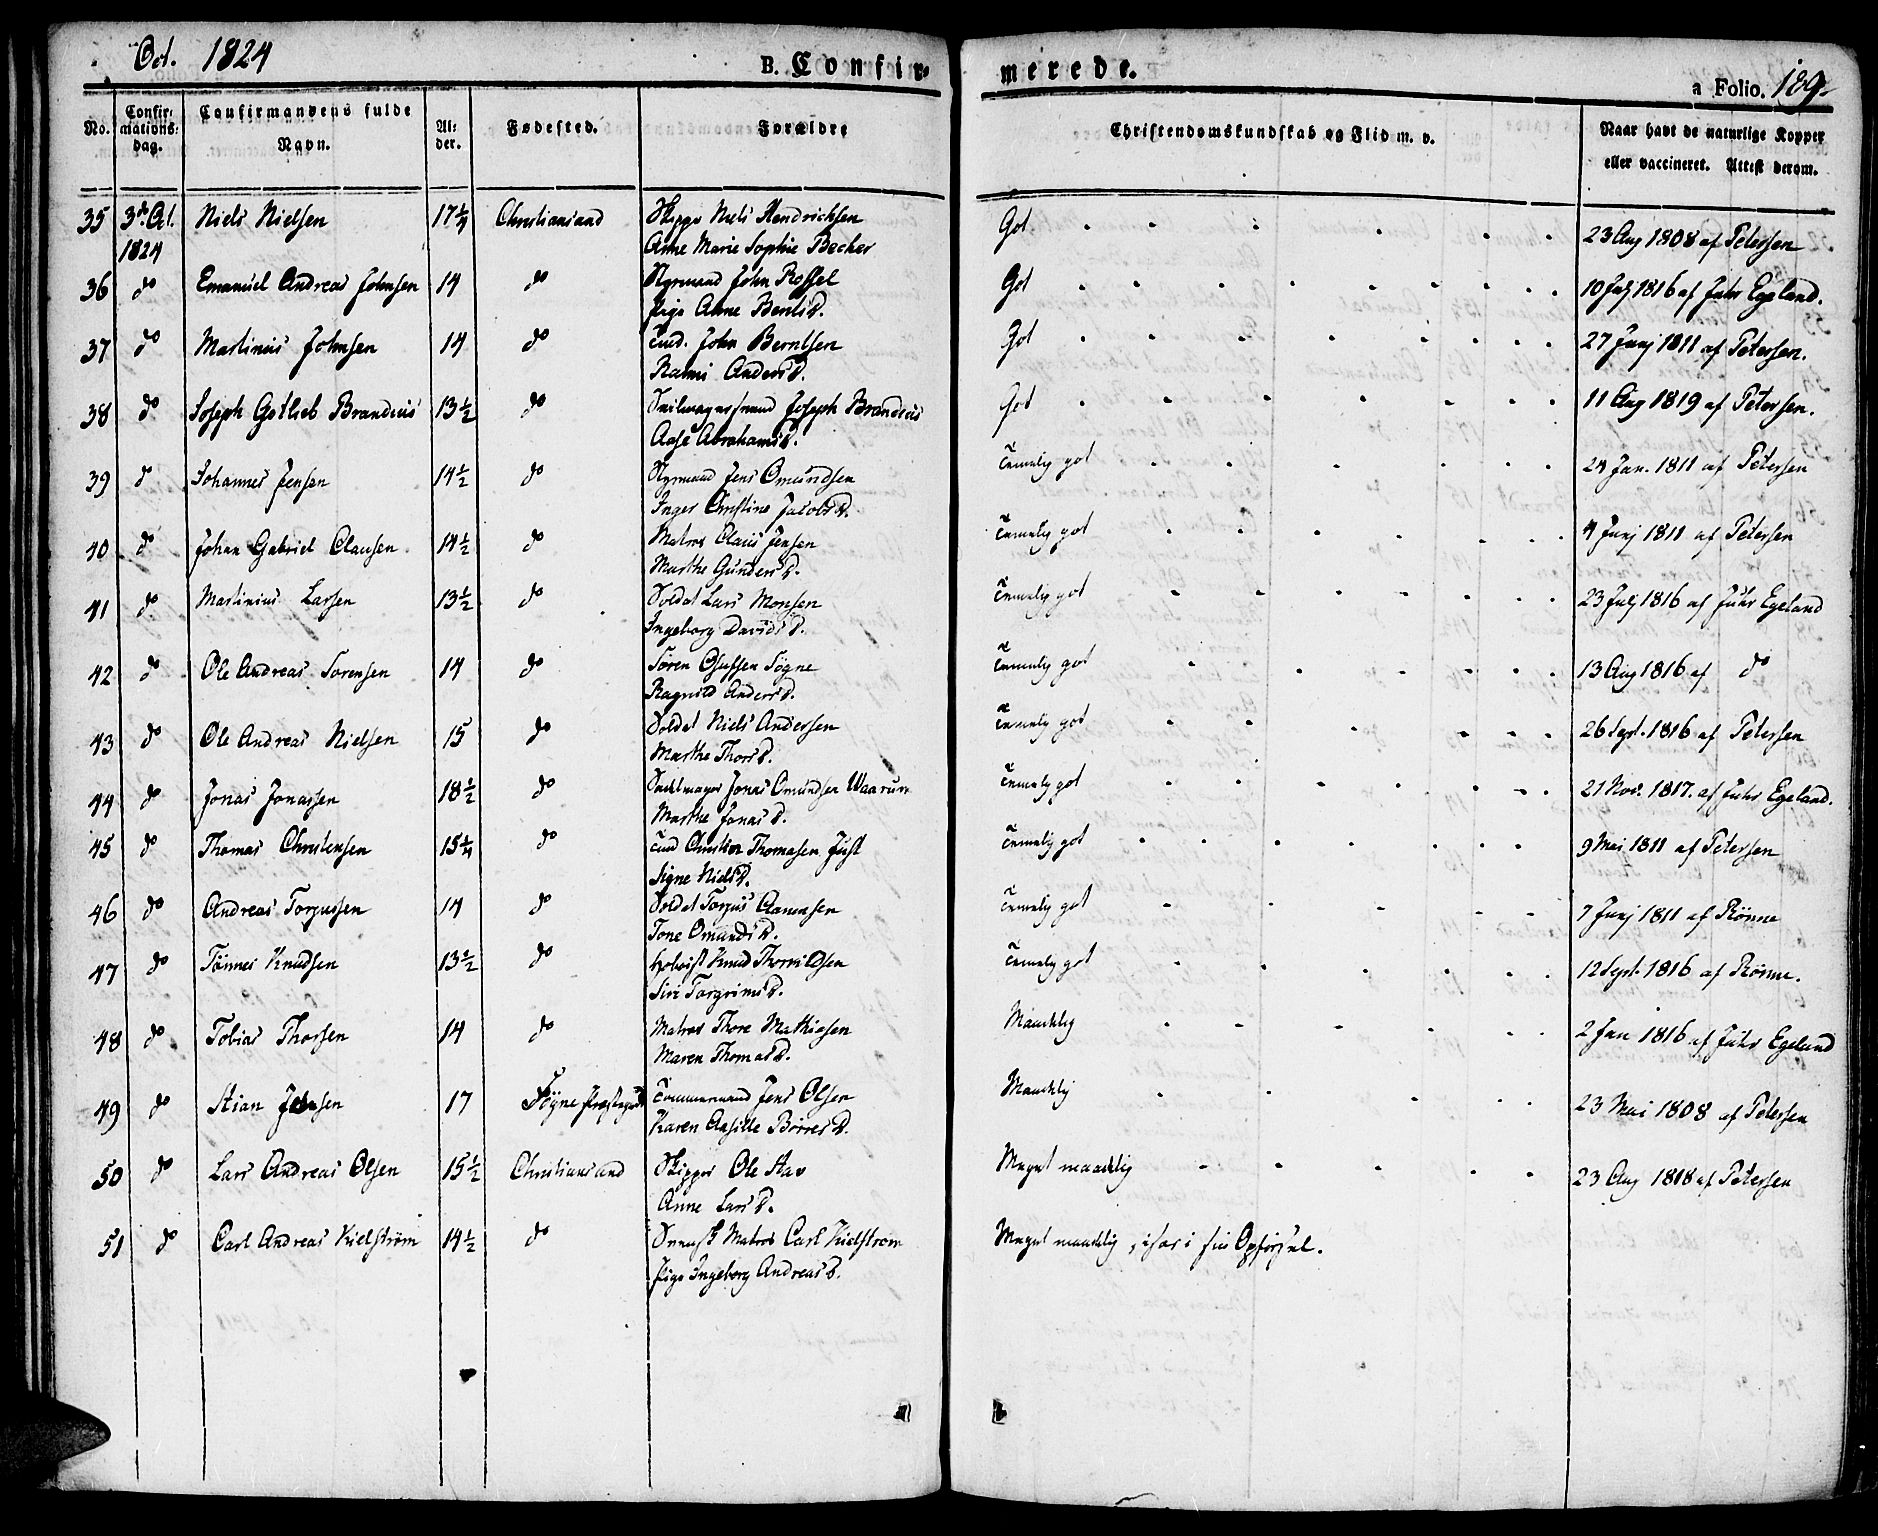 Oct. 1824
B. Confirmerede.
a Folio. 189.
No. Confirmations: dag. Confirmandens fulde Navn. Alder. Fødested. Forældre Christendomskundskab og Flid m. v. Naar havt de naturlige Kopper eller vaccineret. Attest derom.
35 3d Oct. Niels Nielsen 17¼ Christiansand Skipper Niels Hendrichsen Got 23 Aug 1808 af Petersen
1824 Anne Marie Sophie Becker
36 do Emanuel Andreas Johnsen 14 do Styrmand John Rossel Got 10 Julj 1816 af Juhr Egeland.
Pige Anne Bents D.
37 do Martinus Johnsen 14 do John Berntsen Got 27 Junj 1811 af Petersen.
Rachel Anders D.
38 do Joseph Gotlieb Brandeis 13½ do Joseph Brandeis Got 11 Aug 1819 af Petersen.
Aase Abrahams D.
39 do Johannes Jensen 14½ do Styrmand Jens Omundsen Temelig got 24 Jan. 1811 af Petersen
Inger Christine Jacobs D.
40 do Johan Gabriel Clausen 14½ do Matros Claus Jensen Temelig got 4 Junj 1811 af Petersen
Marthe Gunders D.
41 do Martinius Larsen 13½ do Soldat Lars Monsen Temelig got 23 Julj 1816 af Juhr Egeland
Ingeborg Davids D.
42 do Ole Andreas Sørensen 14 do Søren Olufsen Søgne Temelig got 13 Aug 1816 af do
Ragnild Anders D.
43 do Ole Andreas Nielsen 15 do Soldat Niels Andersen Temelig got 26 Sept. 1816 af Petersen
Marthe Thors D.
44 do Jonas Jonassen 18½ do Jonas Omundsen Waarum Temelig got 21 Nov. 1817. af Juhr Egeland.
Marthe Jonas D.
45 do Thomas Christensen 15¼ do Christen Thomasen Just Temelig got 9 Mai 1811 af Petersen
Signe Niels D.
46 do Andreas Torjussen 14 do Soldat Torjus Aanensen Temelig got 7 Junj 1811 af Rönne
Tone Omunds D.
47 do Tønnes Knudsen 13½ do Knud Thorvildsen Temelig got 12 Sept. 1816 af Rönne.
Siri Torgrims D.
48 do Tobias Thorsen 14 do Matros Thore Mathiasen Maadelig 2 Jan 1816 af Juhr Egeland
Maren Thomas D.
49 do Stian Jensen 17 Søgne Præstegield Tømmermand Jens Olsen Maadelig 23 Mai 1808 af Petersen
Karen Aasille Børres D.
50 do Lars Andreas Olsen 15½ Christiansand Skipper Ole Aas Meget maadelig 23 Aug 1818 af Petersen
Anne Lars D.
51 do Carl Andreas Kielstrøm 14½ do Svensk Matros Carl Kielstrøm Meget maadelig, i sin Opførsel.
Pige Ingeborg Andreas D.